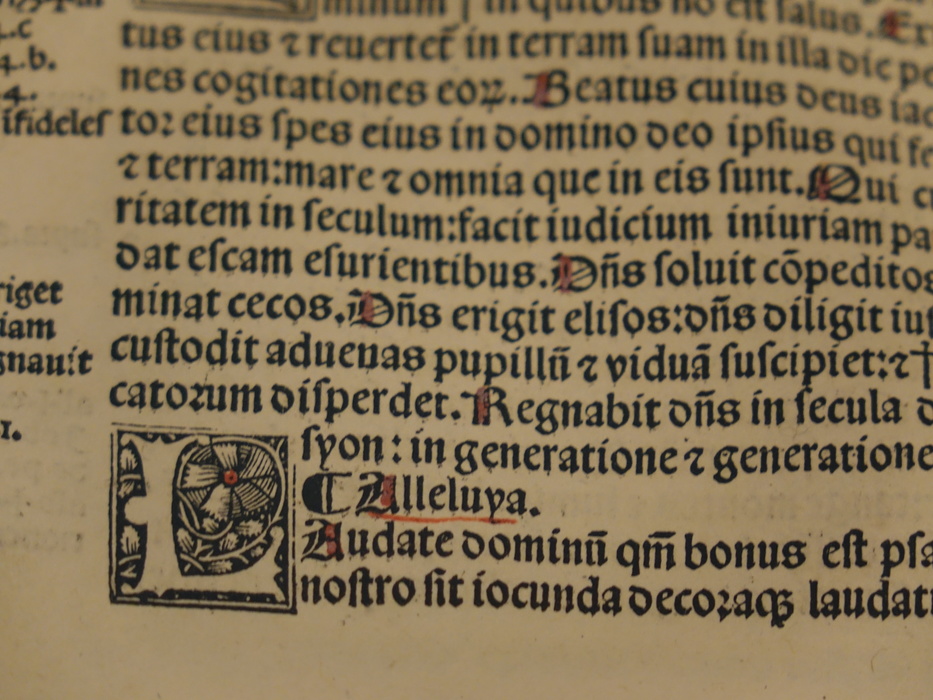 in quibus nō est salus. Ex
tus eius ⁊ reuertet̄ in terram suam in illa die pe
nes cogitationes eoꝝ. Beatus cuius deus iac
toꝛ eius spes eius in domino deo ipsius qui fe
⁊ terram:mare ⁊ omnia que in eis sunt. Qui cu
ritatem in seculum:facit iudicium iniuriam pa
dat escam esurientibus. Dn̄s soluit cōpeditos
minat cecos. Dn̄s erigit elisos:dn̄s diligit ius
custodit aduenas pupillū ⁊ viduā suscipiet:⁊
catoꝛum disperdet. Regnabit dn̄s in secula d
syon: in generatione ⁊ generatione
Alleluya.
L
Audate dominū qm̄ bonus est psa
nostro sit iocunda decoꝛaqꝫ laudati
4.b.
4.
ifideles
riget
iam
gnauit